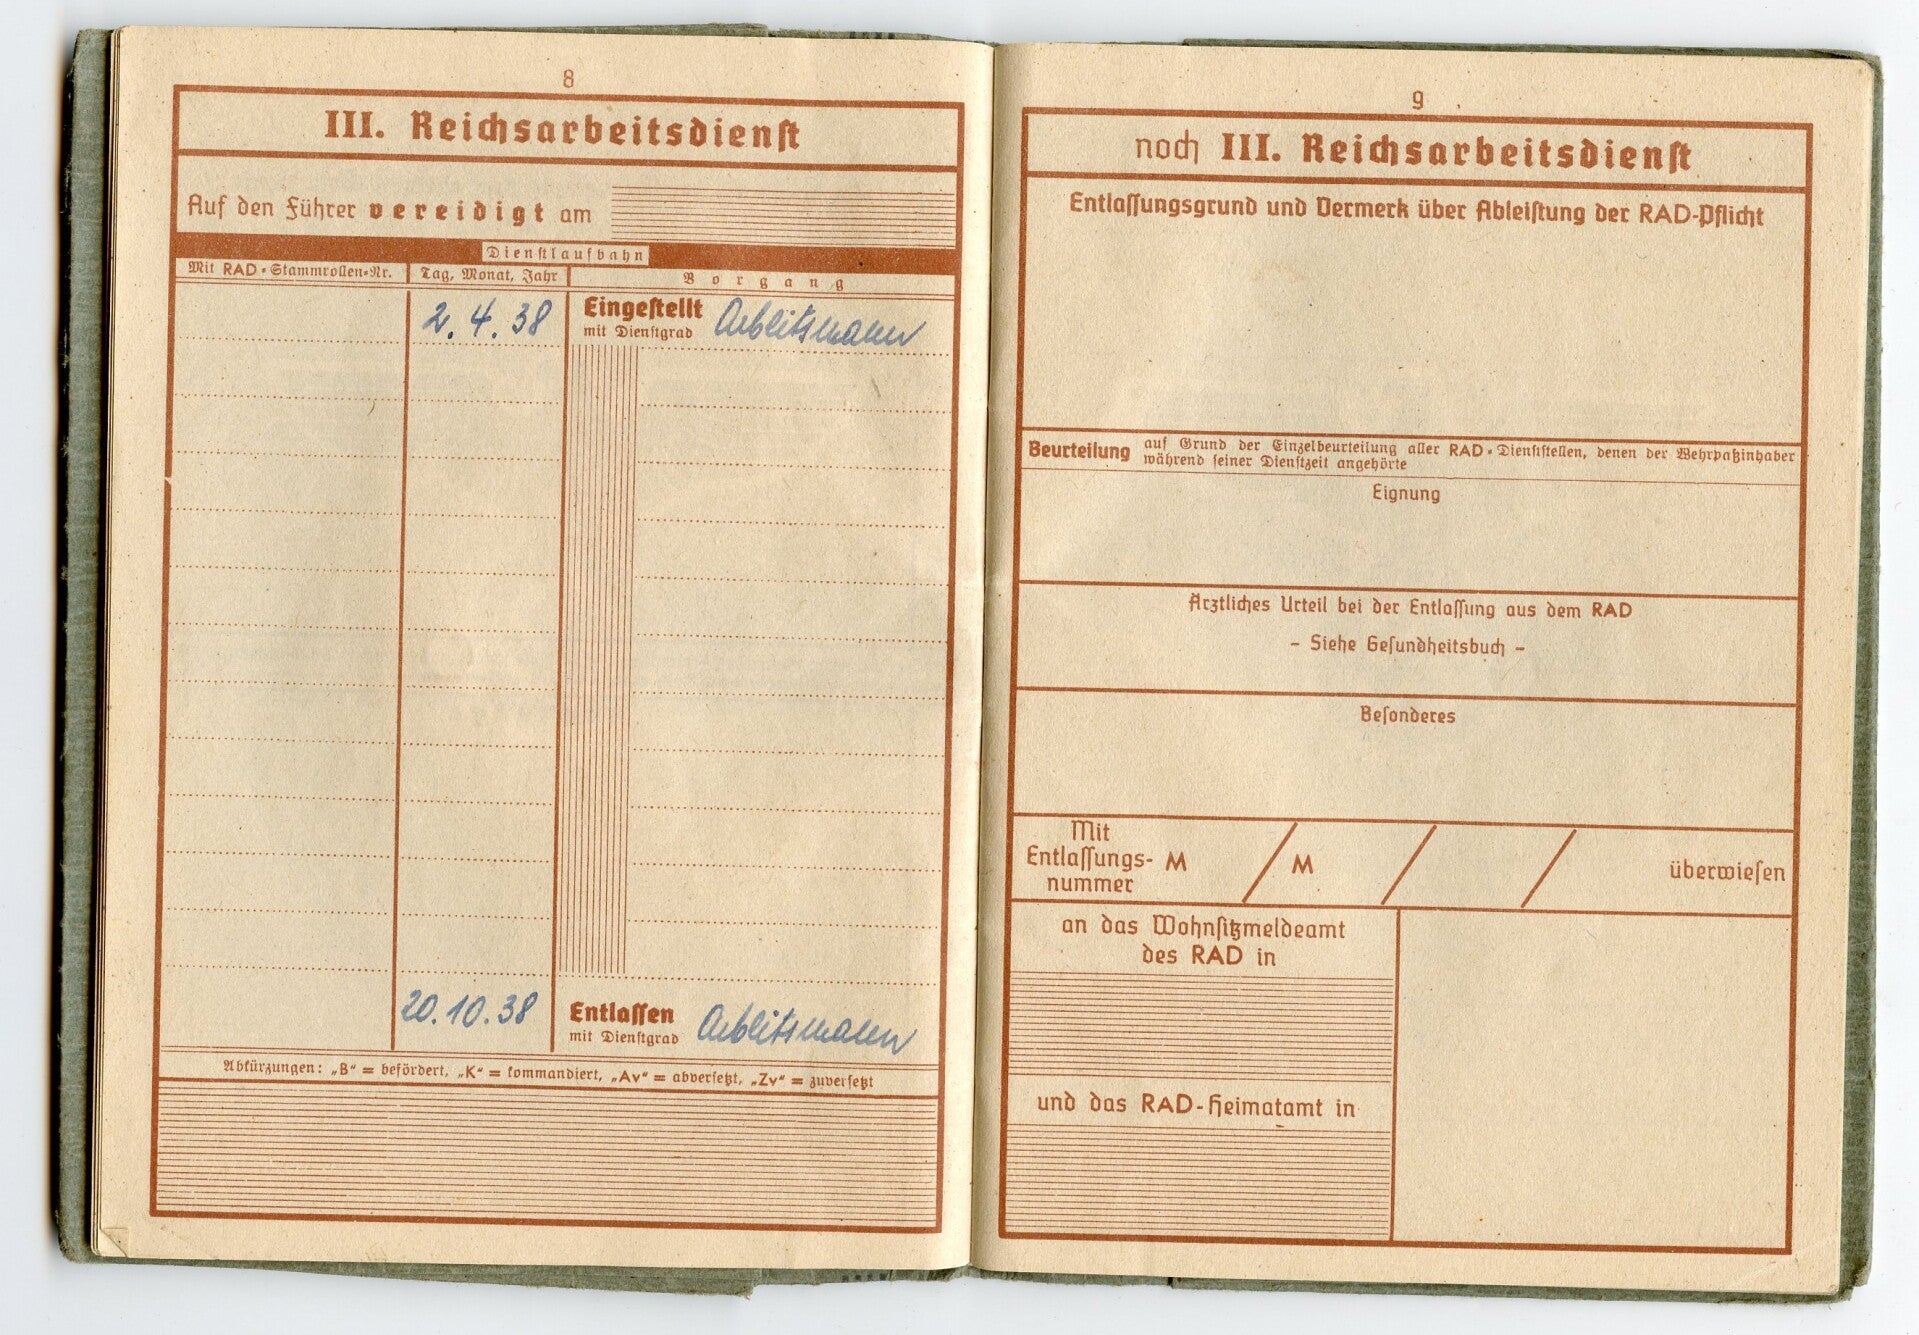 8
III. Reichsarbeitsdienst
Auf den Führer vereidigt am
Dienstlaufbahn
Mit RAD-Stammrollen-Nr. Tag, Monat, Jahr Vorgang
2.4.38 Eingestellt
mit Dienstgrad Arbeitsmann
20.10.38 Entlassen
mit Dienstgrad Arbeitsmann
Abkürzungen: „B“ = befördert, „K“ = kommandiert, „Av“ = abversetzt, „Zv“ = zuversetzt
9
noch III. Reichsarbeitsdienst
Entlassungsgrund und Vermerk über Ableistung der RAD-Pflicht
Beurteilung auf Grund der Einzelbeurteilung aller RAD-Dienststellen, denen der Wehrpaßinhaber
während seiner Dienstzeit angehörte
Eignung
Ärztliches Urteil bei der Entlassung aus dem RAD
- Siehe Gesundheitsbuch -
Besonderes
Mit
Entlassungs- M / M / / überwiesen
nummer
an das Wohnsitzmeldeamt
des RAD in
und das RAD-Heimatamt in